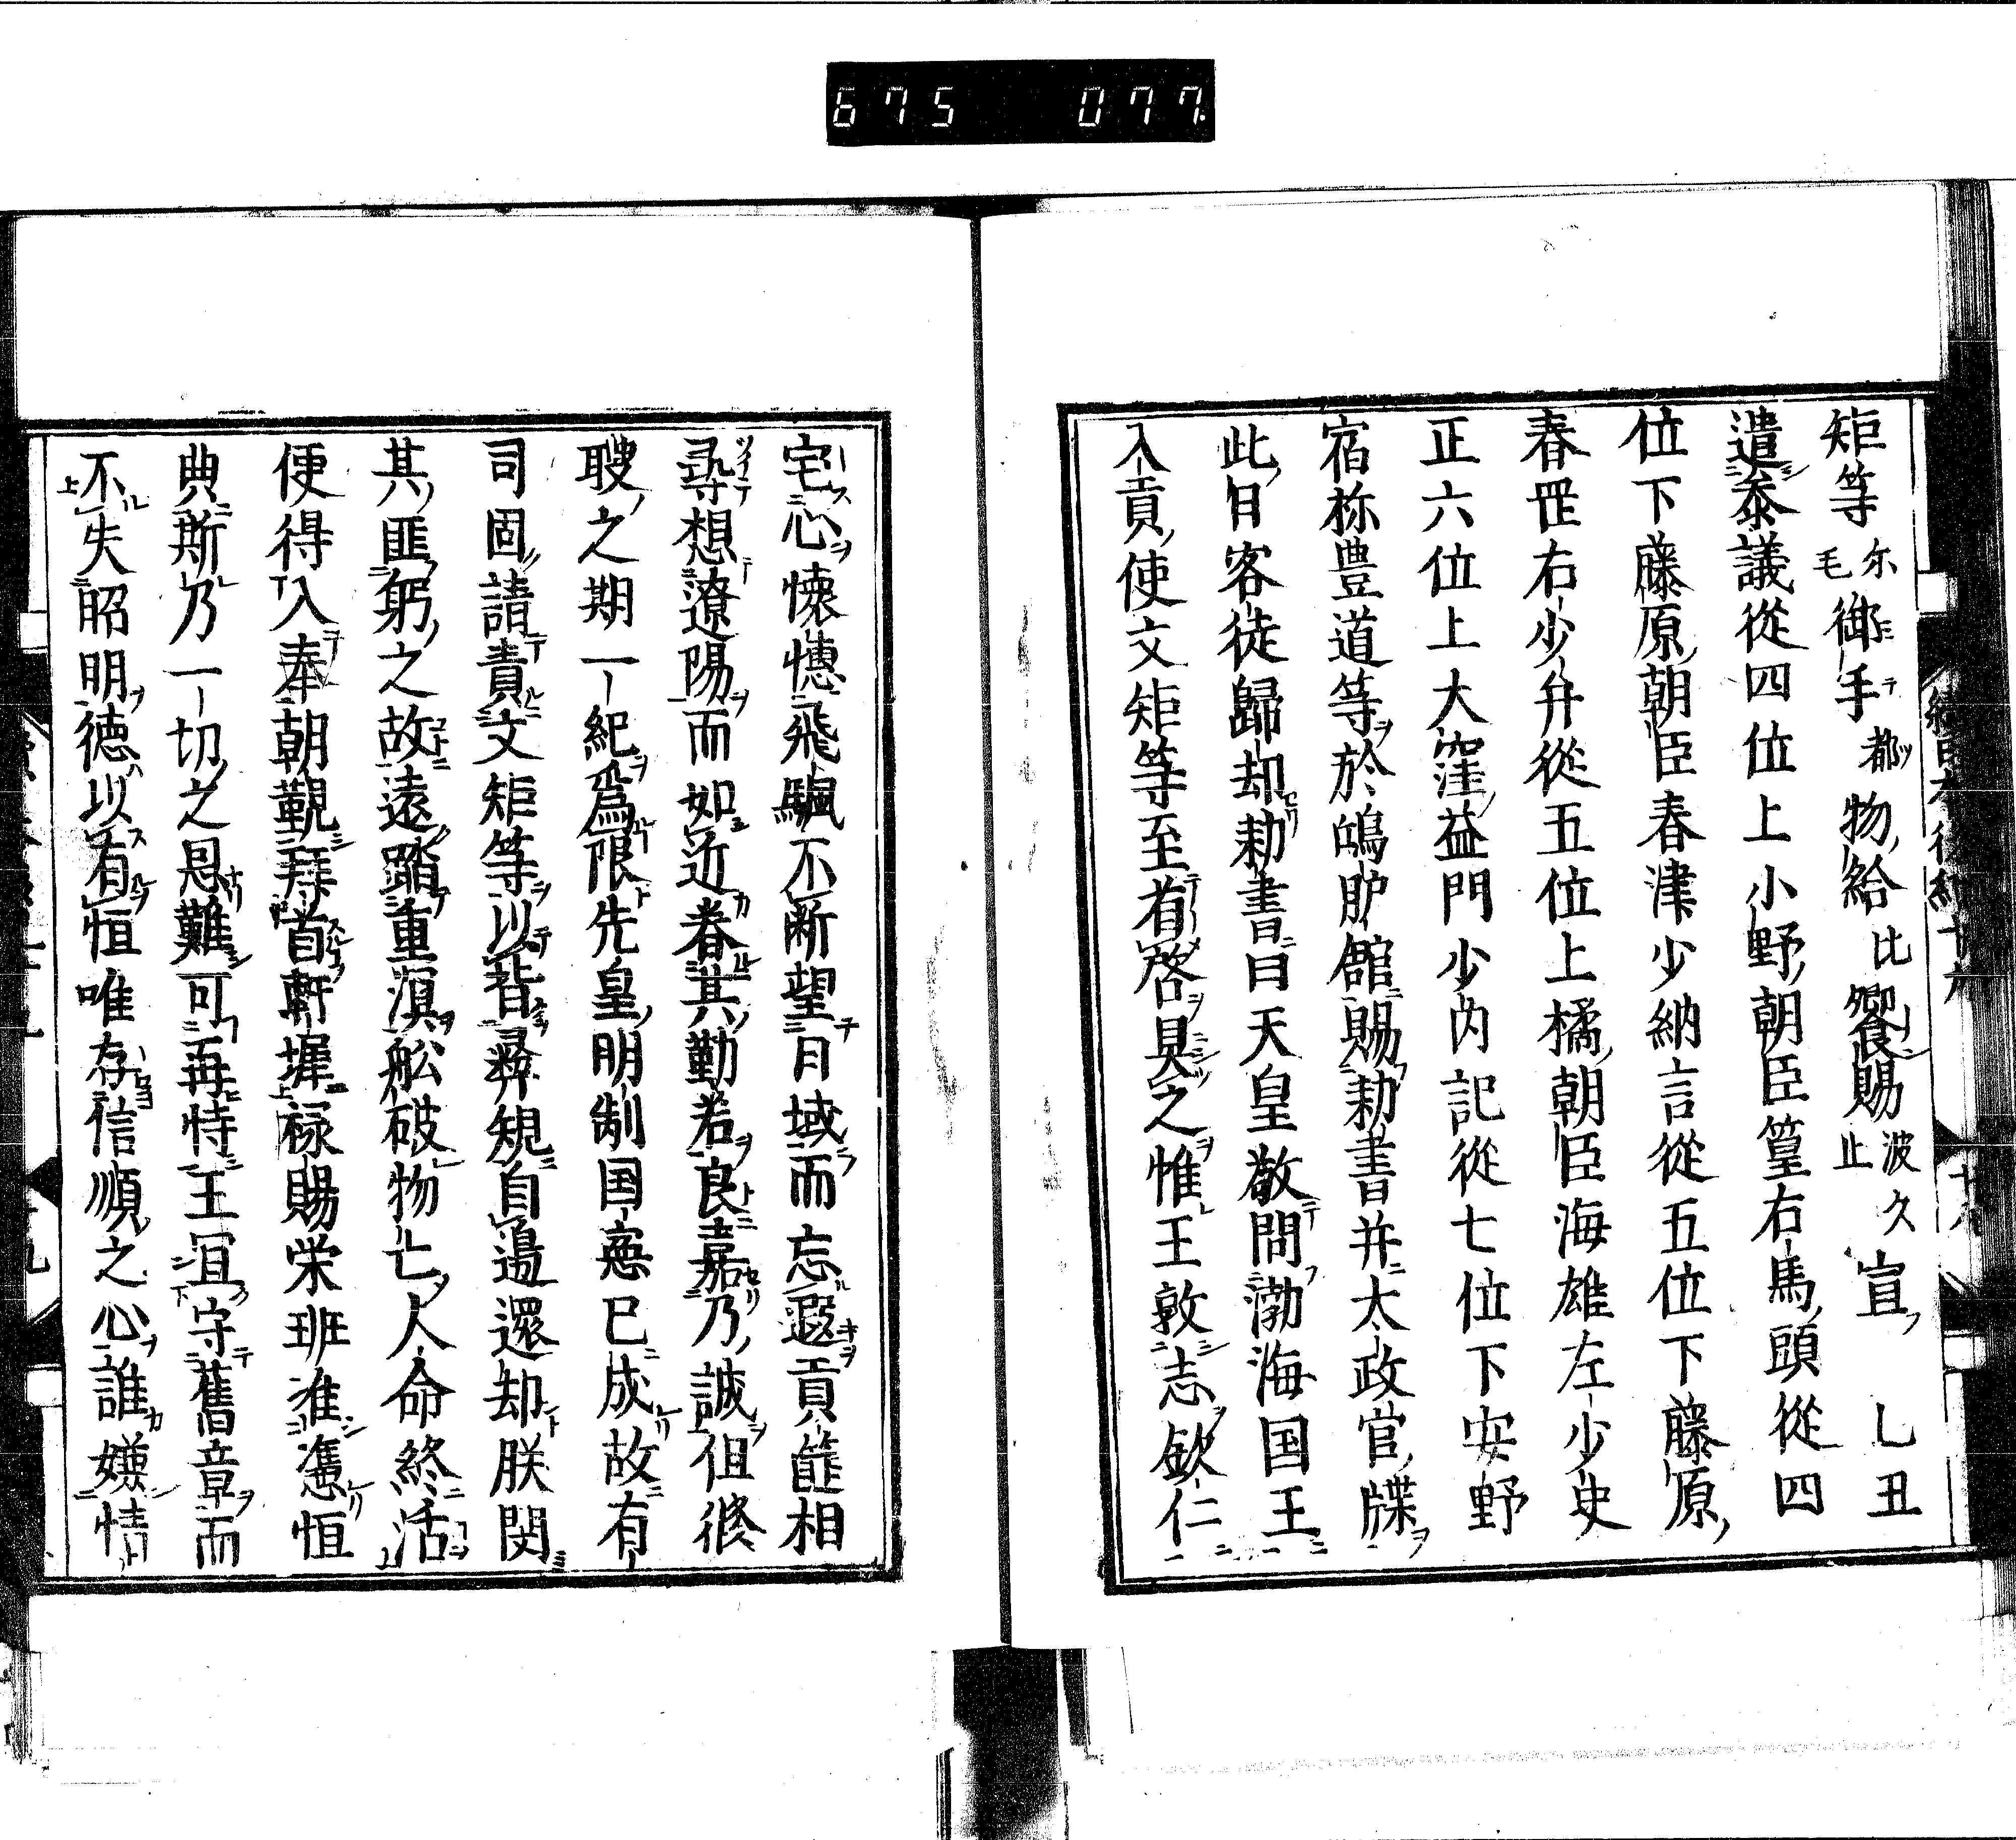 675 077
矩等尓毛御手都物給比饗賜波久止宣乚丑
遣叅議從四位上小野朝臣篁右馬頭從四
位下藤原朝臣春津少納言從五位下藤原
春罡右少弁從五位上橘朝臣海雄左少史
正六位上大窪益門少内記從七位下安野
宿祢豊道等於鴻胪舘賜勅書并太政官牒
此日客徒歸却勅書曰天皇敬問渤海国王
入貢使文矩等至省啓具之惟王敦志欽仁
宅心懐憓飛颿不断望月域而忘遐貢篚相
尋想遼陽而如近眷其勤若良嘉乃誠但修
聘之期一紀爲限先皇明制国憲已成故有
司固請責文矩等以背彛䂓自邉還却朕閔
其匪躬之故遠踏重溟舩破物亡人命終活
便得入奉朝覲拜首軒墀禄賜栄班准憑恒
典斯乃一切之恩難可再恃王宜守舊章而
不失昭明徳以有恒唯存信順之心誰嫌情